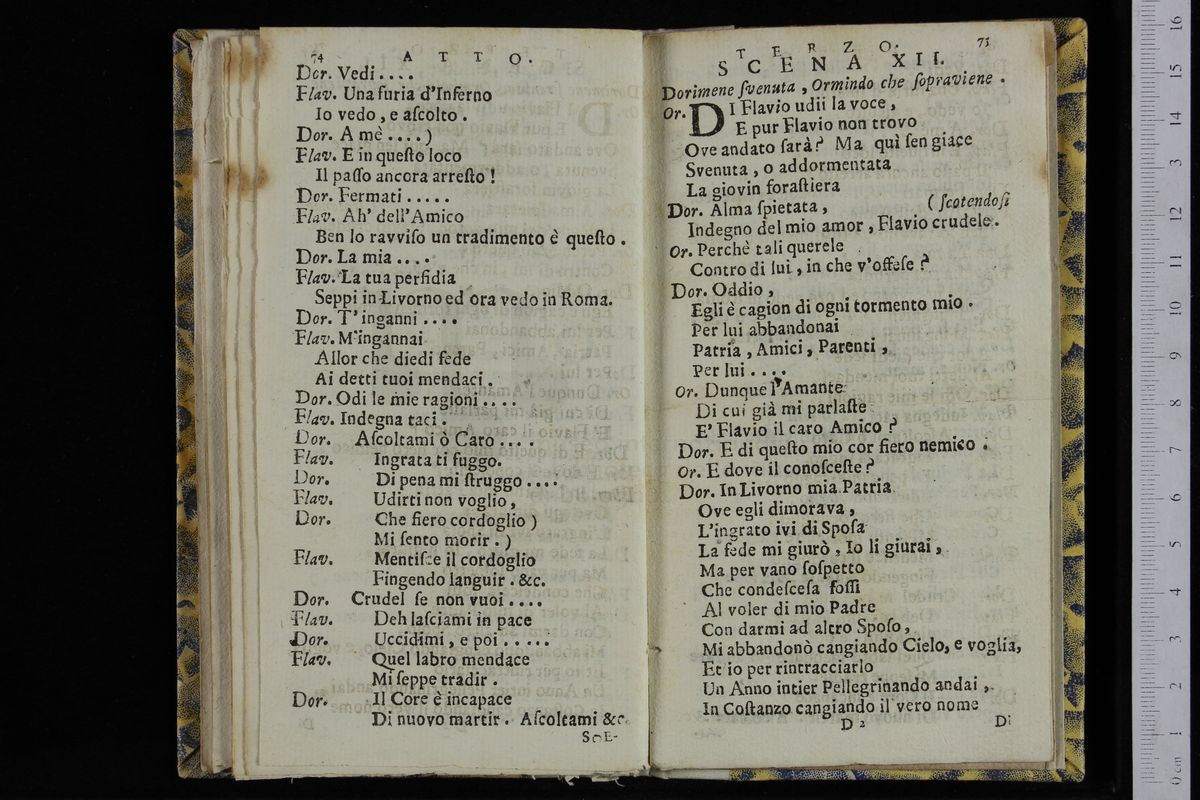 74 ATTO.
Dor. Vedi....
Flav. Una furia d'Inferno
Io vedo, e aſcolto.
Dor. A mè....)
Flav. E in queſto loco
Il paſſo ancora arreſto!
Dor. Fermati.....
Flav. Ah' dell'Amico
Ben lo ravviſo un tradimento è queſto.
Dor. La mia....
Flav. La tua perfidia
Seppi in Livorno ed ora vedo in Roma.
Dor. T'inganni....
Flav. M'ingannai
Allor che diedi fede
Ai detti tuoi mendaci.
Dor. Odi le mie ragioni....
Flav. Indegna taci.
Dor. Aſcoltami ò Caro....
Flav. Ingrata ti fuggo.
Dor. Di pena mi ſtruggo....
Flav. Udirti non voglio,
Dor. Che fiero cordoglio)
Mi ſento morir.)
Flav. Mentiſce il cordoglio
Fingendo languir. &c.
Dor. Crudel ſe non vuoi....
Flav. Deh laſciami in pace
Dor. Uccidimi, e poi.....
Flav. Quel labro mendace
Mi ſeppe tradir.
Dor. Il Core è incapace
Di nuovo martir. Aſcoltami &c.
SCE-
TERZO. 75
SCENA XII.
Dorimene ſvenuta, Ormindo che ſopraviene.
Or. DI Flavio udii la voce,
E pur Flavio non trovo
Ove andato ſarà? Ma qui ſen giace
Svenuta, o addormentata
La giovin foraſtiera
Dor. Alma ſpietata, (ſcotendoſi
Indegno del mio amor, Flavio crudele.
Or. Perchè tali querele
Contro di lui, in che v'offeſe?
Dor. Oddio,
Egli è cagion di ogni tormento mio.
Per lui abbandonai
Patria, Amici, Parenti,
Per lui....
Or. Dunque l'Amante
Di cui già mi parlaſte
E' Flavio il caro Amico?
Dor. E di queſto mio cor fiero nemico.
Or. E dove il conoſceſte?
Dor. In Livorno mia Patria
Ove egli dimorava,
L'ingrato ivi di Spoſa
La fede mi giurò, Io li giurai,
Ma per vano ſoſpetto
Che condeſceſa foſſi
Al voler di mio Padre
Con darmi ad altro Spoſo,
Mi abbandonò cangiando Cielo, e voglia,
Et io per rintracciarlo
Un Anno intier Pellegrinando andai,
In Coſtanzo cangiando il vero nome
D 2 Di
0 cm 1 2 3 4 5 6 7 8 9 10 11 12 13 14 15 16